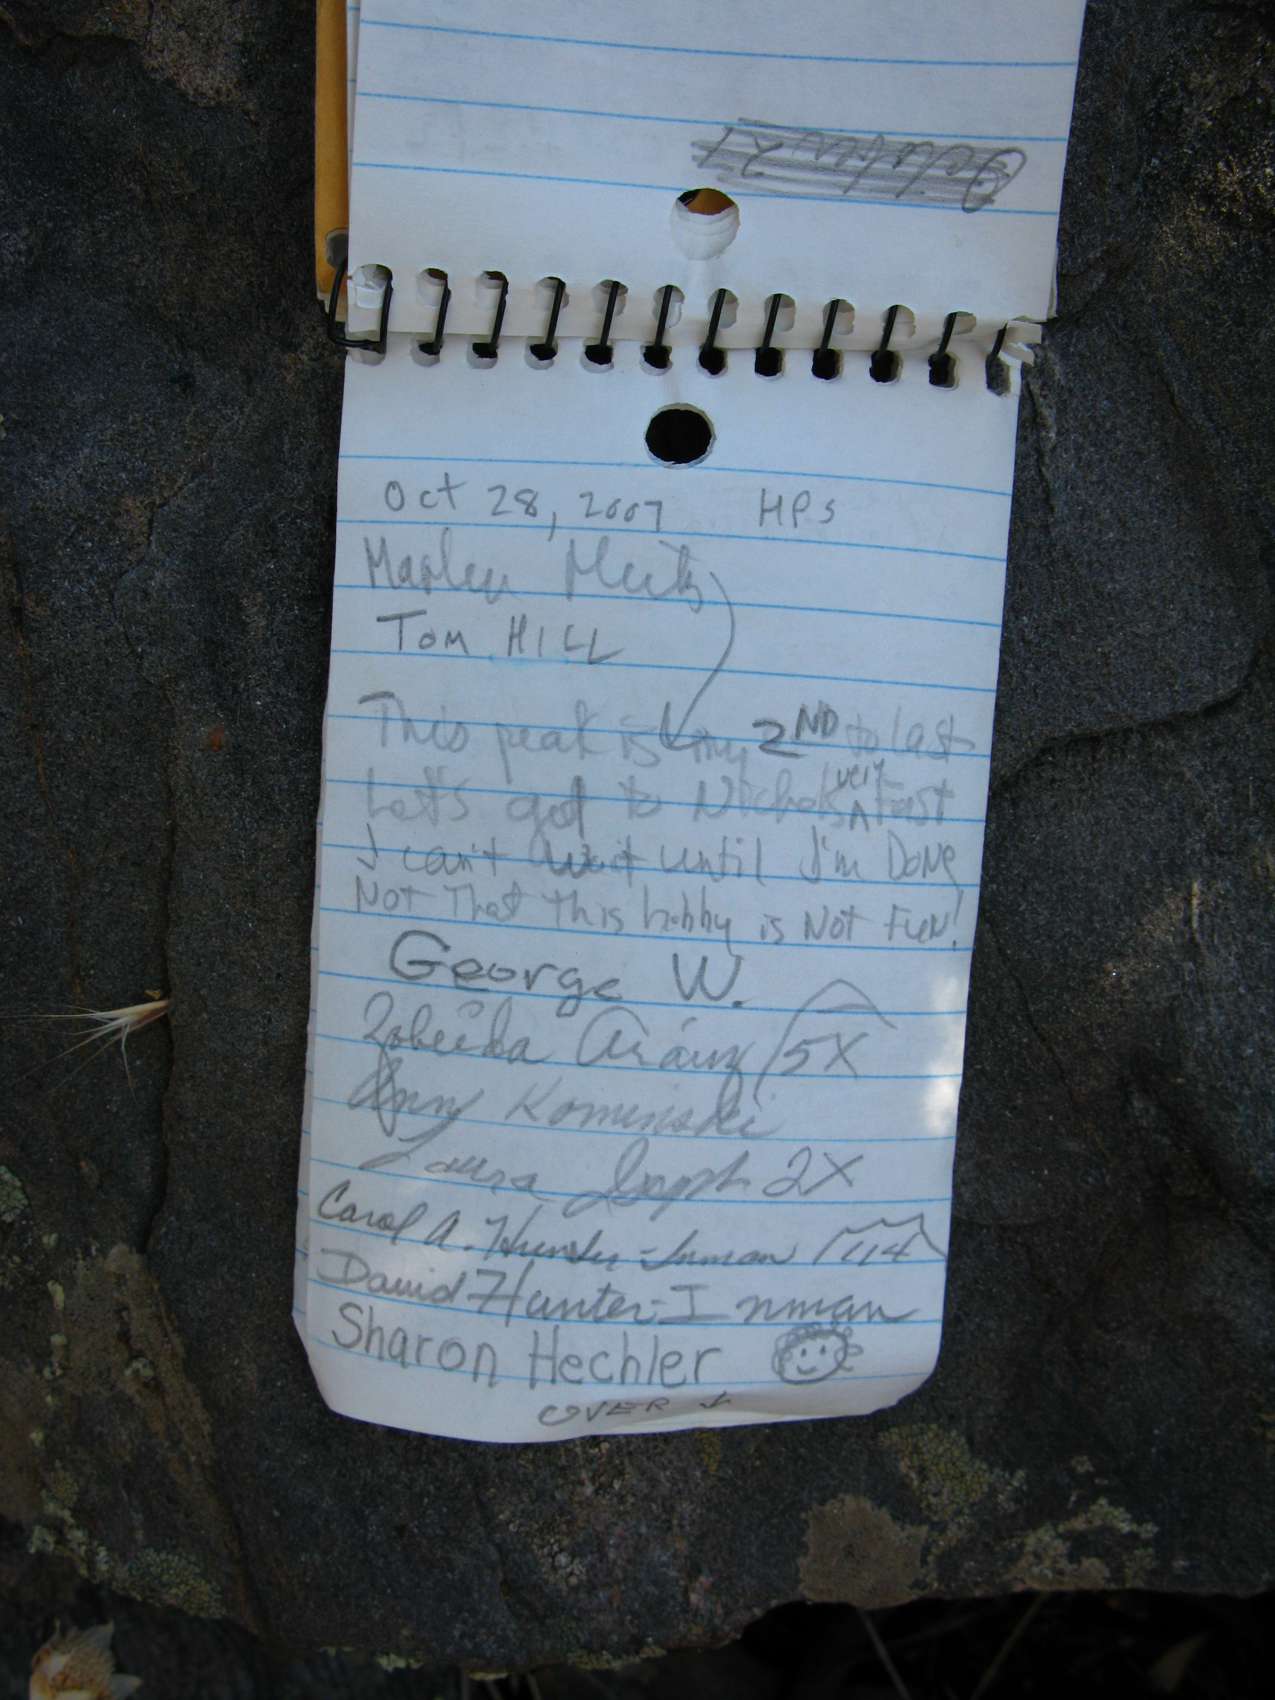 October 21
Oct 28, 2007 HPS
Tom HILL
This peak is my 2ND to last
Let's get to Nichols very Fast
I can't wait until I'm DONE
Not That This hobby is Not FUN!
George W.
Zobeida Aráuz 5X
Ann Kominski
Laura 2X
Carol A. Hunter-Inman 114
David Hunter-Inman
Sharon Hechler
OVER ↓